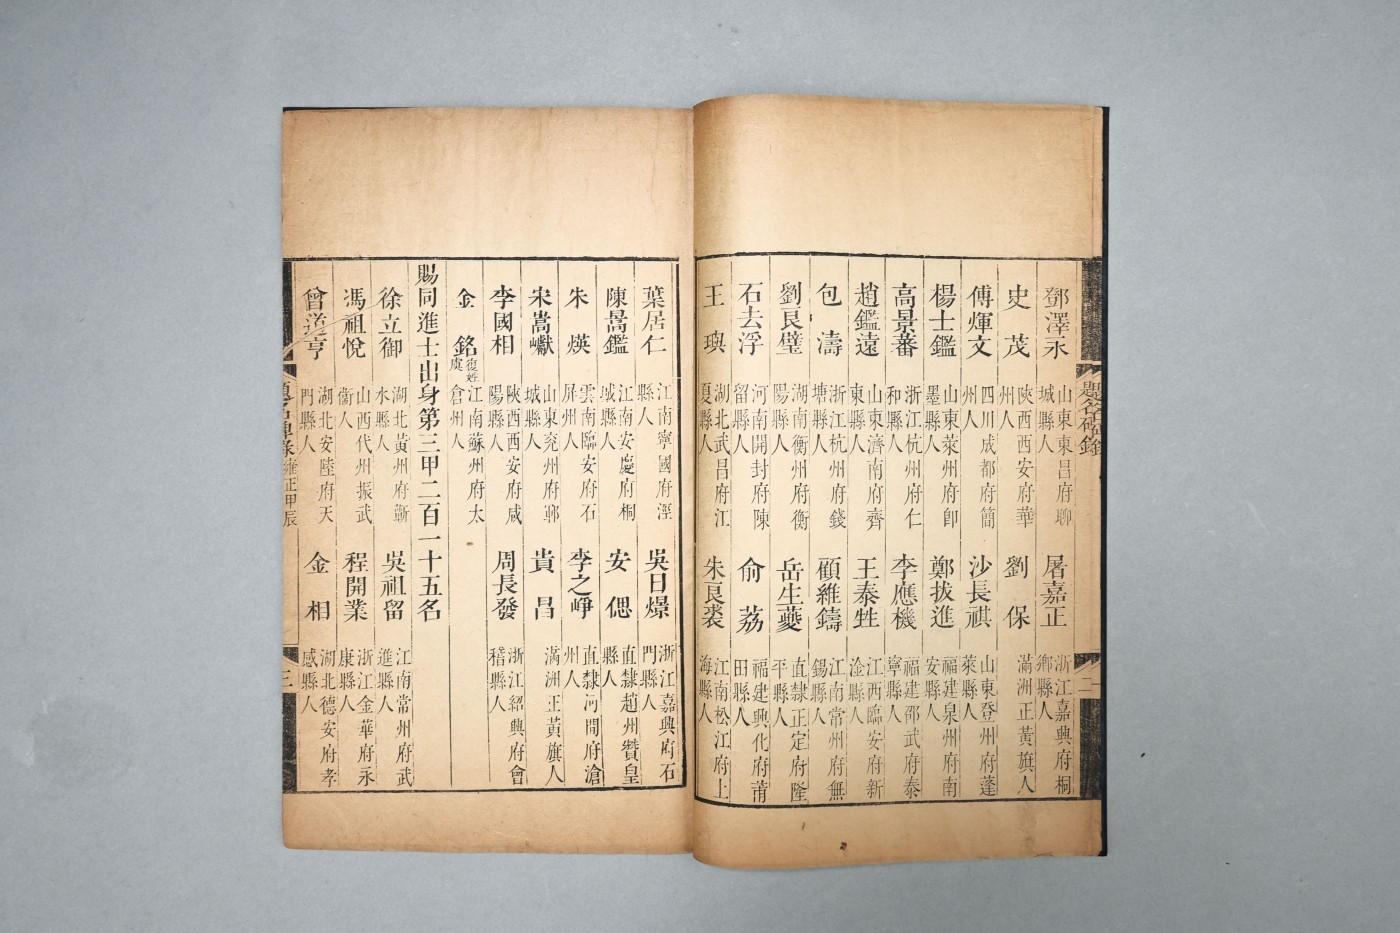 鄧澤永 山東東昌府聊城縣人 屠嘉正 浙江嘉興府桐鄉縣人
史茂 陝西西安府華州人 劉保 滿洲正黃旗人
傅煇文 四川成都府簡州人 沙長祺 山東登州府蓬萊縣人
楊士鑑 山東萊州府卽墨縣人 鄭拔進 福建泉州府南安縣人
高景蕃 浙江杭州府仁和縣人 李應機 福建邵武府泰寧縣人
趙鑑遠 山東濟南府齊東縣人 王泰甡 江西臨安府新淦縣人
包濤 浙江杭州府錢塘縣人 顧維鑄 江南常州府無錫縣人
劉良璧 湖南衡州府衡陽縣人 岳生夔 直隸正定府隆平縣人
石去浮 河南開封府陳留縣人 俞荔 福建興化府莆田縣人
王璵 湖北武昌府江夏縣人 朱良裘 江南松江府上海縣人
題名碑錄 二
葉居仁 江南寧國府涇縣人 吳日燝 浙江嘉興府石門縣人
陳暠鑑 江南安慶府桐城縣人 安偲 直隸趙州贊皇縣人
朱煐 雲南臨安府石屏州人 李之崢 直隸河間府滄州人
宋嵩巘 山東兖州府鄆城縣人 貴昌 滿洲正黃旗人
李國相 陝西西安府咸陽縣人 周長發 浙江紹興府會稽縣人
金銘 復姓虞 江南蘇州府太倉州人
賜同進士出身第三甲二百一十五名
徐立御 湖北黃州府蘄水縣人 吳祖留 江南常州府武進縣人
馮祖悅 山西代州振武衛人 程開業 浙江金華府永康縣人
曾道亨 湖北安陸府天門縣人 金相 湖北德安府孝感縣人
題名碑錄 雍正甲辰 三